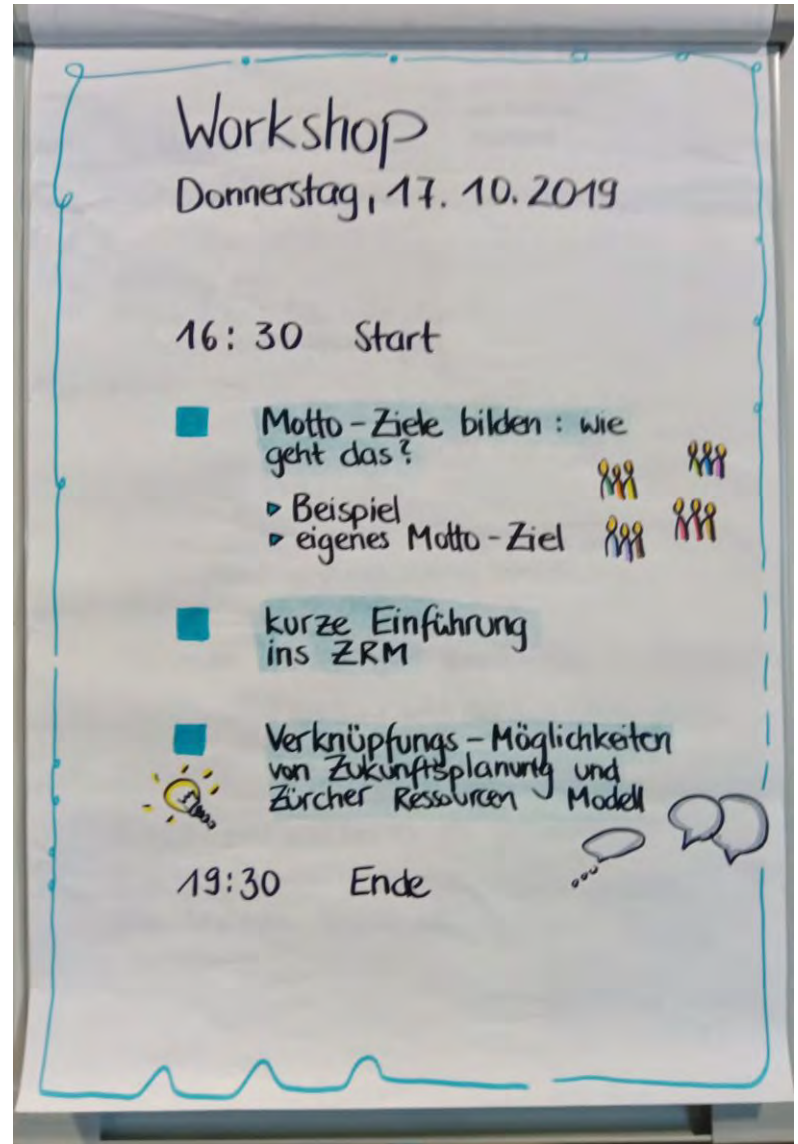 Workshop
Donnerstag, 17. 10. 2019
16:30 Start
Motto-Ziele bilden: wie
geht das?
▹ Beispiel
▹ eigenes Motto-Ziel
kurze Einführung
ins ZRM
Verknüpfungs-Möglichkeiten
von Zukunftsplanung und
Zürcher Ressourcen Modell
19:30 Ende